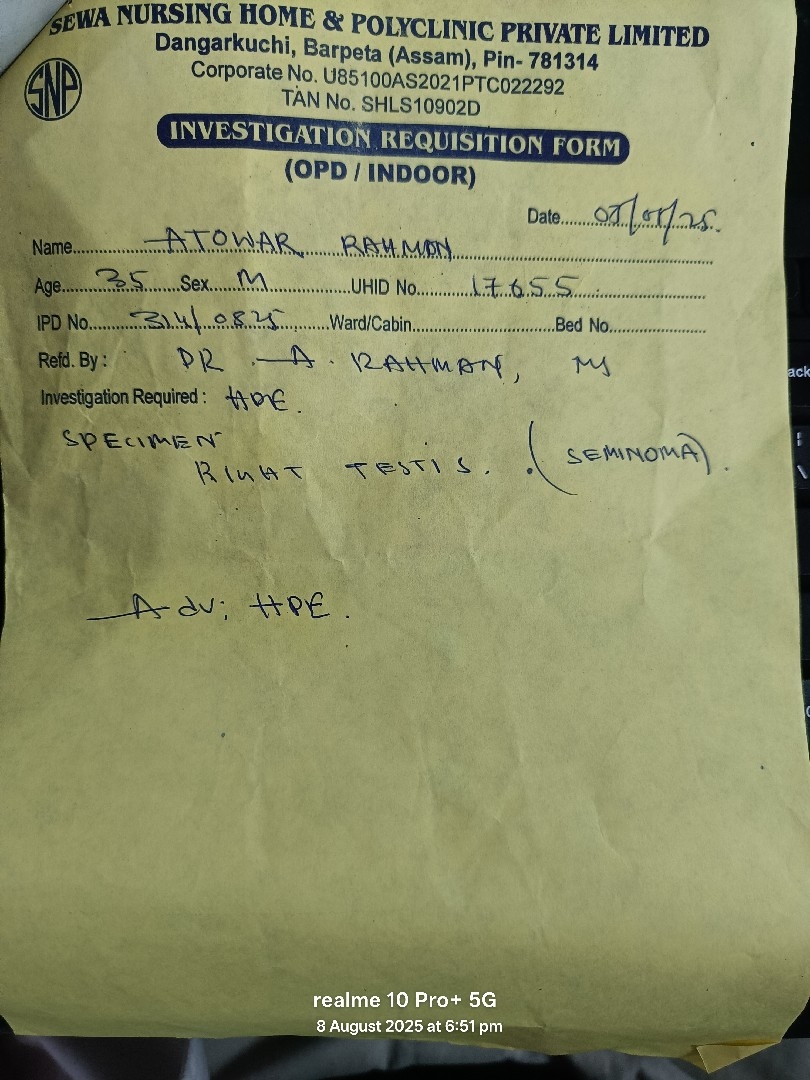 SEWA NURSING HOME & POLYCLINIC PRIVATE LIMITED
Dangarkuchi, Barpeta (Assam), Pin- 781314
Corporate No. U85100AS2021PTC022292
TAN No. SHLS10902D
SNP
INVESTIGATION REQUISITION FORM
(OPD / INDOOR)
Date.....
Name..... ATOWAR RAHMAN
Age..... 35 Sex.... M .....UHID No..... 17655
IPD No.... 314/0825 .....Ward/Cabin..........Bed No..........
Refd. By : DR. A. RAHMAN, MS
Investigation Required : HPE.
SPECIMEN
RIGHT TESTIS. (SEMINOMA).
Adv; HPE.
realme 10 Pro+ 5G
8 August 2025 at 6:51 pm